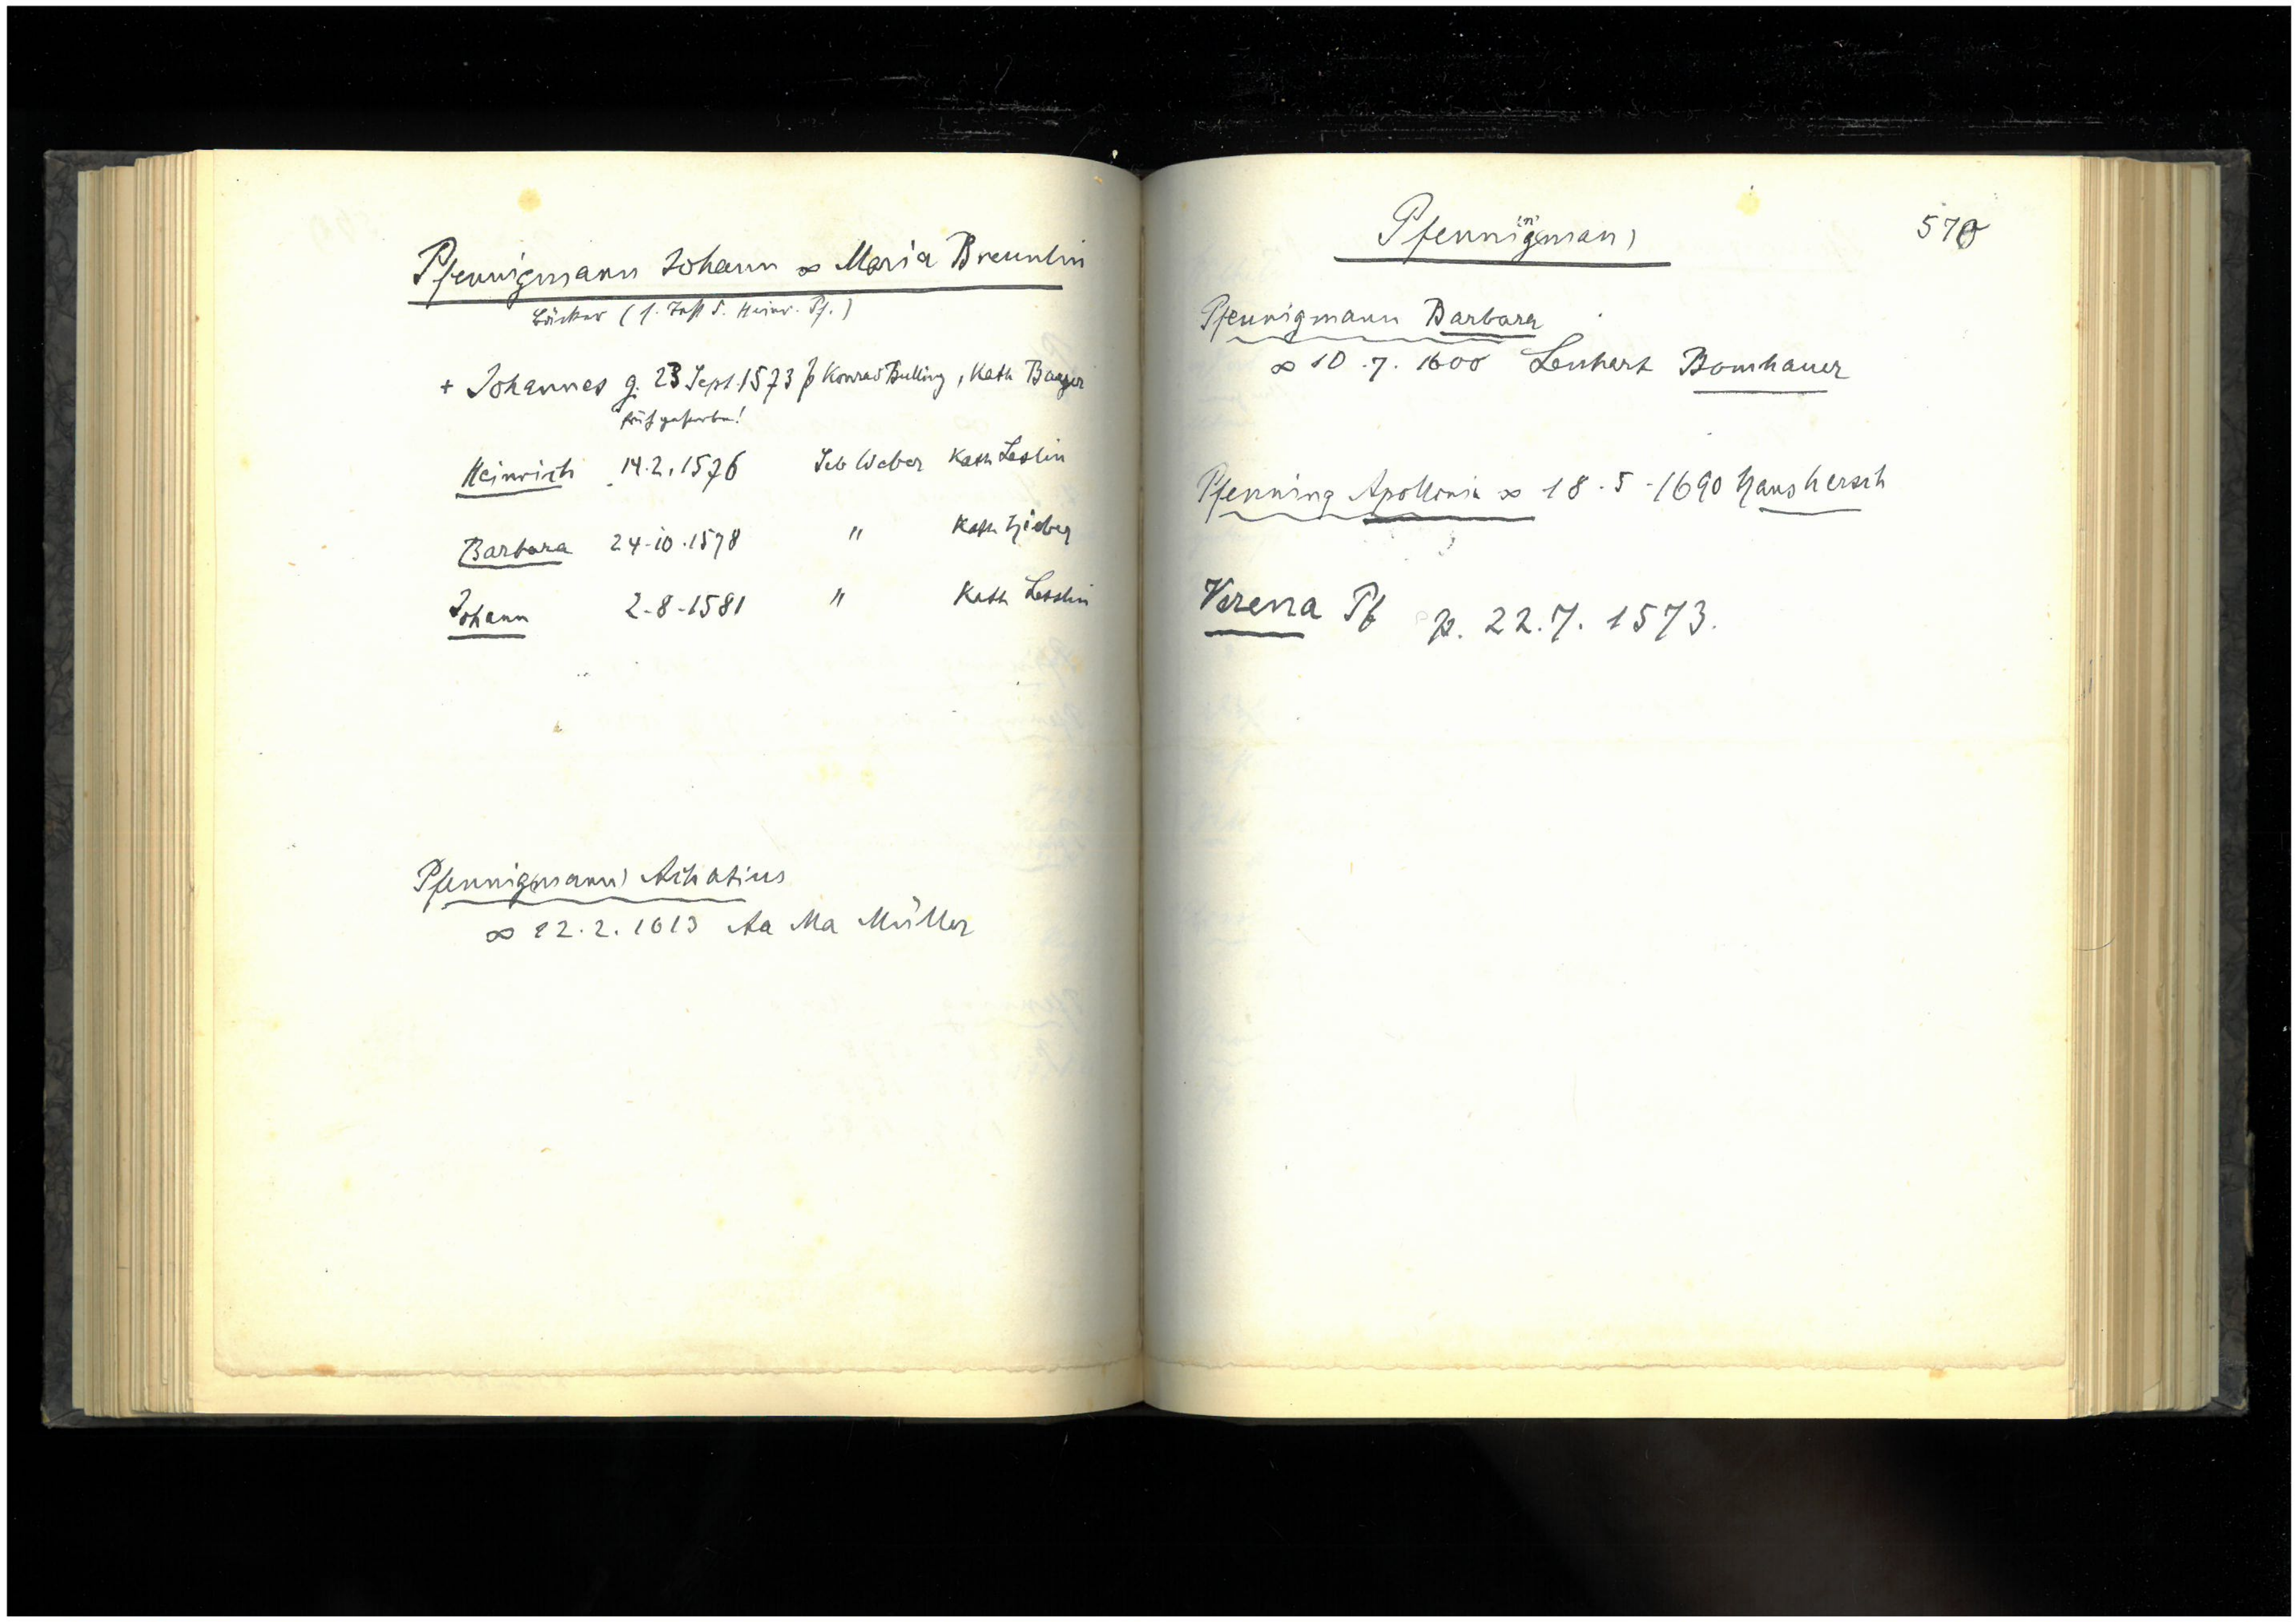 Pfennigmann Johann ∞ Maria Breunlin
Bäcker (1. Sohn d. Heinr. Pf.)
+ Johannes g. 23 Sept. 1573 p Konrad Bulling, Kath
früh gestorben!
Heinrich 14.2.1576 Seb Weber Kath Leslin
Barbara 24.10.1578 " Kath
Johann 2-8-1581 " Kath Lesslin
Pfennig(mann) Achatius
∞ 12.2.1613 Aa Ma Müller
Pfennig(man) 570
Pfennigmann Barbara
∞ 10.7.1600 Lenhart Bomhauer
Pfenning Apollonia ∞ 18-5-1690 Hans Hersch
Verena Pf p. 22.7.1573.